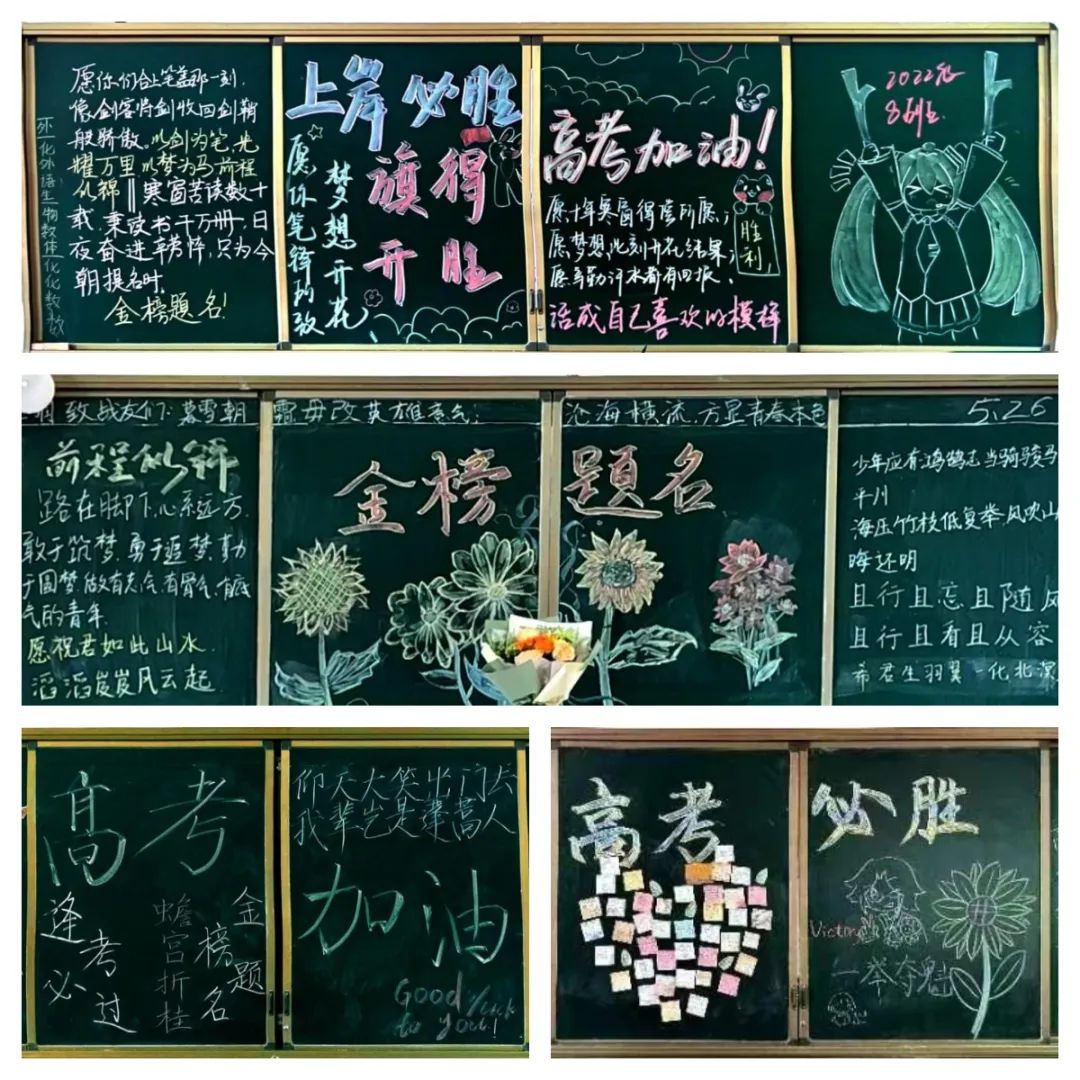 愿你们合上笔盖那一刻.
像剑客将剑收回剑鞘
般骄傲。以剑为笔,光
耀万里以梦为马前程
似锦‖寒窗苦读数十
载,乘读书千万册,日
夜奋进辛苦阵,只为今
朝提名时.
金榜题名!
上岸必胜
旗得
开胜
愿你笔锋所致
梦想开花
高考加油!
愿十年寒窗得偿所愿;
愿梦想此刻开花结果;
愿辛勤汗水都有回报.
活成自己喜欢的模样
胜利
2022级
8班
致战友们:暮雪朝霜毋改英雄意气;沧海横流,方显青春本色
5.26
前程似锦
路在脚下,心系远方.
敢于筑梦,勇于追梦,勤
于圆梦.做有志气,有骨气,有底
气的青年.
愿祝君如此山水.
滔滔岌岌风云起.
金榜题名
少年应有鸿鹄志当骑骏马
平川
海压竹枝低复举风吹山
晦还明
且行且忘且随风
且行且看且从容
希君生羽翼一化北溟
高考
逢考必过
蟾宫折桂
金榜题名
仰天大笑出门去
我辈岂是蓬蒿人
加油
Good luck
to you!
高考
必胜
Victory
一举夺魁